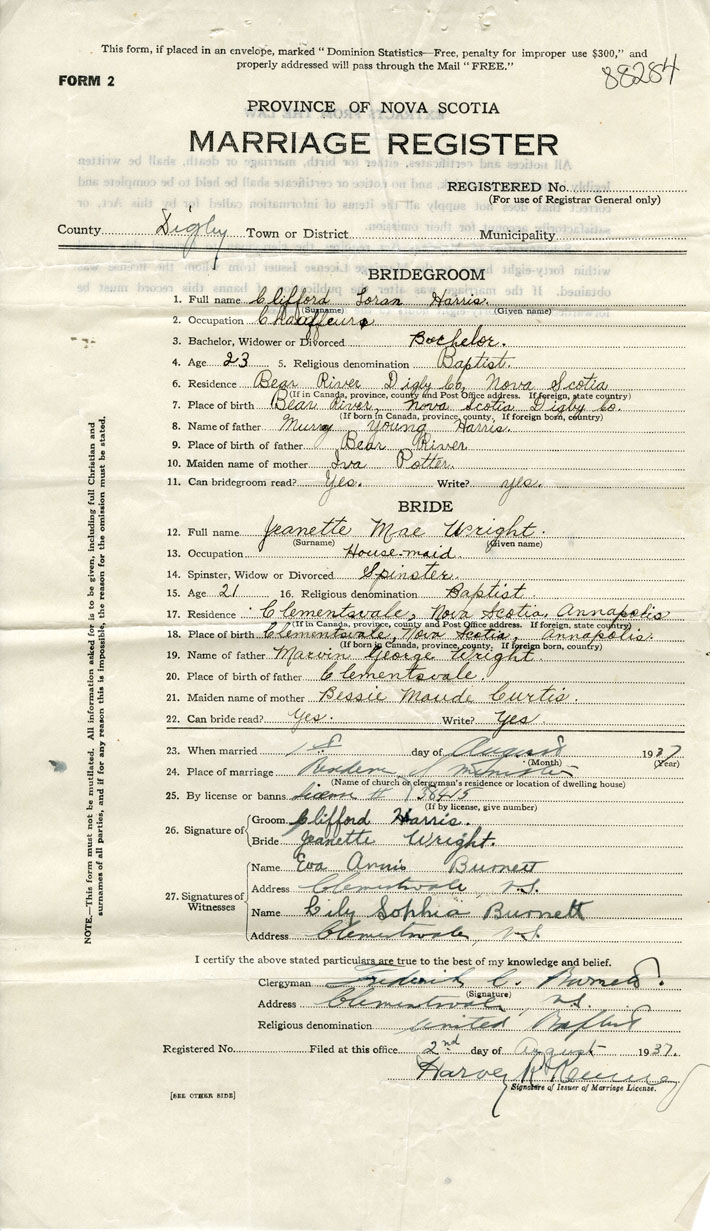 This form, if placed in an envelope, marked "Dominion Statistics—Free, penalty for improper use $300," and
properly addressed will pass through the Mail "FREE."
FORM 2
88284
PROVINCE OF NOVA SCOTIA
MARRIAGE REGISTER
REGISTERED No.
(For use of Registrar General only)
County Digby Town or District Municipality
BRIDEGROOM
1. Full name Clifford Loran Harris.
(Surname) (Given name)
2. Occupation Chauffeur
3. Bachelor, Widower or Divorced Bachelor.
4. Age 23 5. Religious denomination Baptist.
6. Residence Bear River Digby Co, Nova Scotia
(If in Canada, province, county and Post Office address. If foreign, state country)
7. Place of birth Bear River, Nova Scotia Digby Co.
(If born in Canada, province, county. If foreign born, country)
8. Name of father Murry Young Harris.
9. Place of birth of father Bear River
10. Maiden name of mother Iva Potter.
11. Can bridegroom read? Yes. Write? yes.
BRIDE
12. Full name Jeanette Mae Wright.
(Surname) (Given name)
13. Occupation House-maid.
14. Spinster, Widow or Divorced Spinster.
15. Age 21 16. Religious denomination Baptist.
17. Residence Clementsvale, Nova Scotia, Annapolis
(If in Canada, province, county and Post Office address. If foreign, state country)
18. Place of birth Clementsvale, Nova Scotia, Annapolis.
(If born in Canada, province, county. If foreign born, country)
19. Name of father Marvin George Wright.
20. Place of birth of father Clementsvale.
21. Maiden name of mother Bessie Maude Curtis.
22. Can bride read? Yes. Write? Yes
23. When married 1st day of August 1937
(Month) (Year)
24. Place of marriage
(Name of church or clergyman's residence or location of dwelling house)
25. By license or banns License # 138415
(If by license, give number)
26. Signature of
Groom Clifford Harris.
Bride Jeanette Wright.
27. Signatures of Witnesses
Name Eva Annis Burnett
Address Clementsvale, N.S.
Name Lily Sophia Burnett
Address Clementsvale, N.S.
I certify the above stated particulars are true to the best of my knowledge and belief.
Clergyman Frederick C. Burnett.
(Signature)
Address Clementsvale, N.S.
Religious denomination United Baptist
Registered No. Filed at this office 2nd day of August 1937.
Harvey
Signature of Issuer of Marriage License.
[SEE OTHER SIDE]
NOTE.—This form must not be mutilated. All information asked for is to be given, including full Christian and
surnames of all parties, and if for any reason this is impossible, the reason for the omission must be stated.